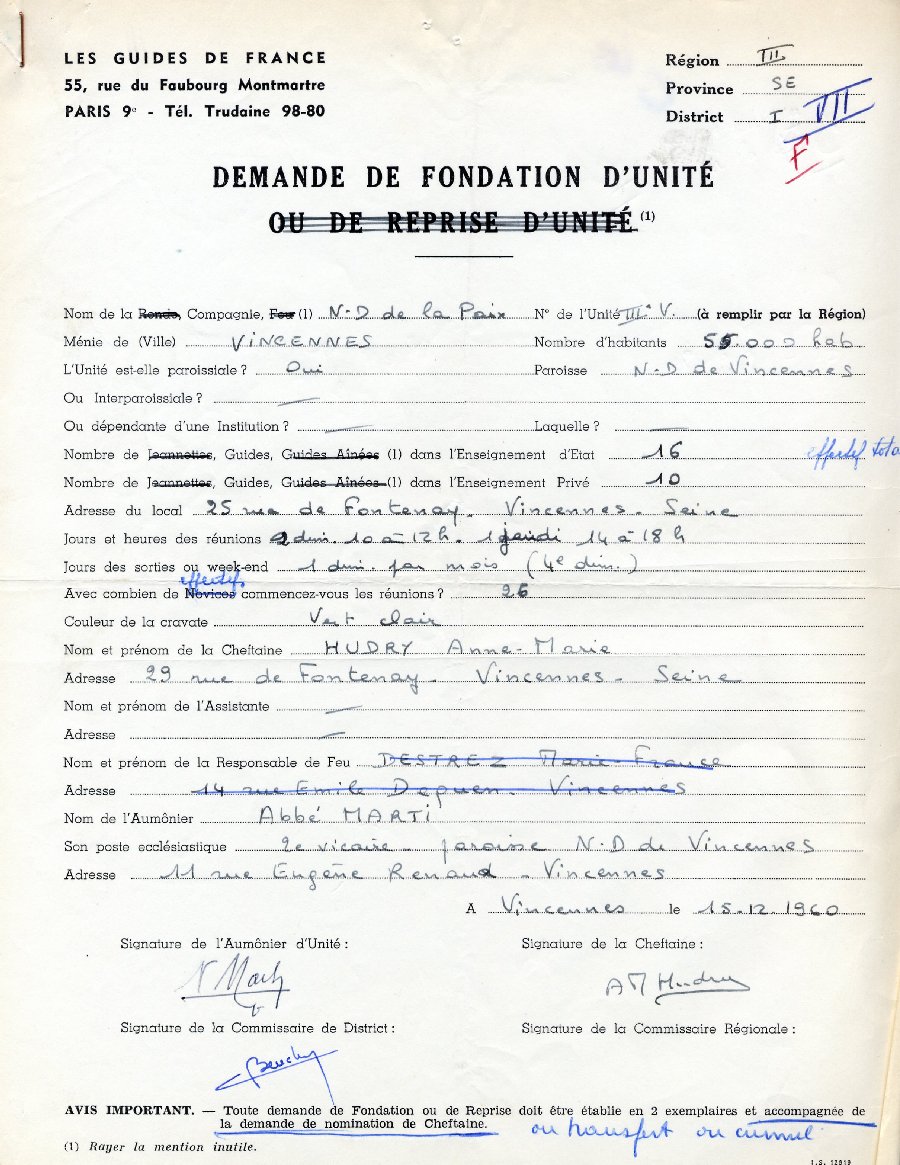 LES GUIDES DE FRANCE
55, rue du Faubourg Montmartre
PARIS 9e - Tél. Trudaine 98-80
Région III
Province SE
District I VII
F
DEMANDE DE FONDATION D'UNITÉ
OU DE REPRISE D'UNITÉ (1)
Nom de la Ronde, Compagnie, Feu (1) N-D de la Paix N° de l'Unité IIIe V. (à remplir par la Région)
Ménie de (Ville) VINCENNES Nombre d'habitants 55.000 hab
L'Unité est-elle paroissiale ? Oui Paroisse N-D de Vincennes
Ou Interparoissiale ? —
Ou dépendante d'une Institution ? — Laquelle ? —
Nombre de Jeannettes, Guides, Guides Aînées (1) dans l'Enseignement d'Etat 16 effectif total
Nombre de Jeannettes, Guides, Guides Aînées (1) dans l'Enseignement Privé 10
Adresse du local 25 rue de Fontenay. Vincennes - Seine
Jours et heures des réunions 2 dim. 10 à 12 h. 1 jeudi 14 à 18 h
Jours des sorties ou week-end 1 dim. par mois (4e dim.)
effectifs
Avec combien de Novices commencez-vous les réunions ? 26
Couleur de la cravate Vert clair
Nom et prénom de la Cheftaine HUDRY Anne-Marie
Adresse 29 rue de Fontenay - Vincennes - Seine
Nom et prénom de l'Assistante —
Adresse —
Nom et prénom de la Responsable de Feu DESTREZ Marie-France
Adresse 14 rue Emile Dequen. Vincennes
Nom de l'Aumônier Abbé MARTI
Son poste ecclésiastique 2e vicaire - paroisse N-D de Vincennes
Adresse 11 rue Eugène Renaud - Vincennes
A Vincennes le 15.12.1960
Signature de l'Aumônier d'Unité :
Signature de la Cheftaine :
AM Hudry
Signature de la Commissaire de District :
Signature de la Commissaire Régionale :
AVIS IMPORTANT. — Toute demande de Fondation ou de Reprise doit être établie en 2 exemplaires et accompagnée de
la demande de nomination de Cheftaine. ou transfert ou cumul
(1) Rayer la mention inutile.
I.S. 12819